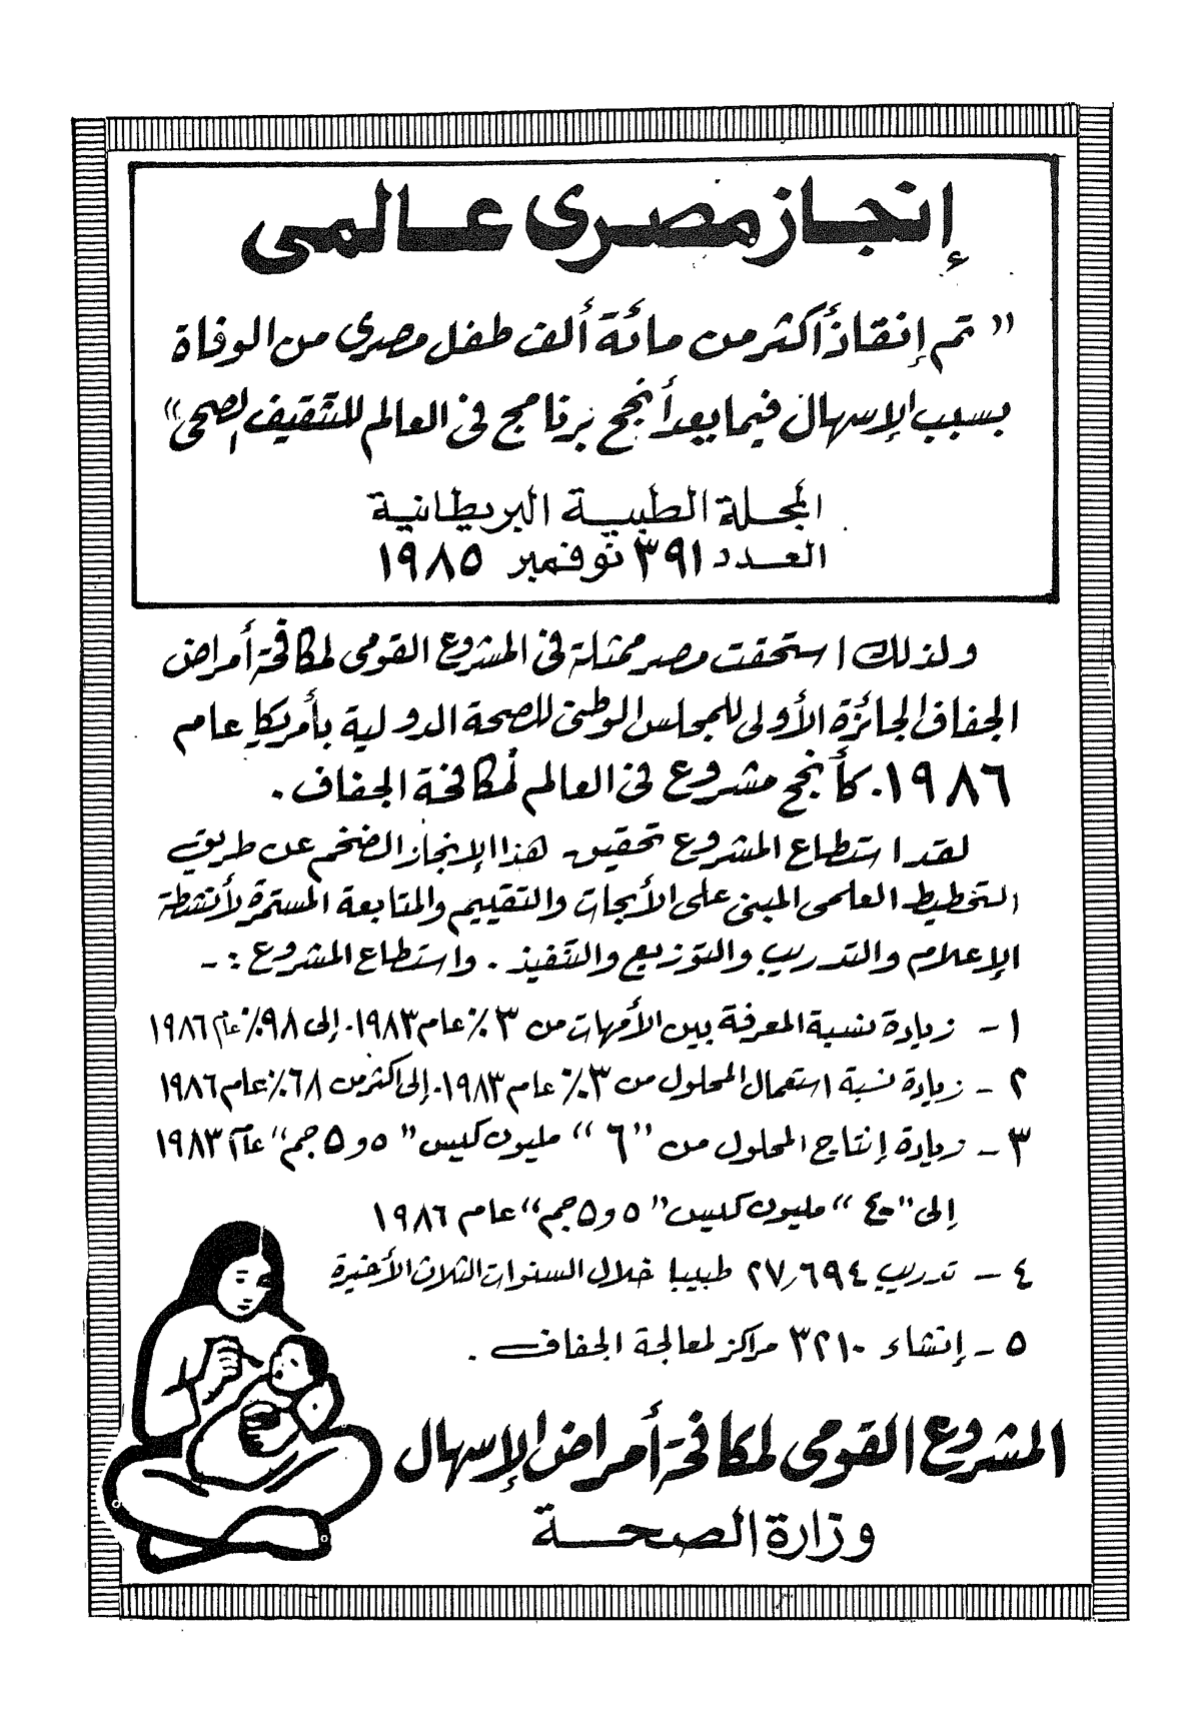 إنجاز مصرى عالمى
” تم إنقاذ أكثر من مائة ألف طفل مصرى من الوفاة
بسبب الإسهال فيما يعد أنجح برنامج فى العالم للتثقيف الصحى“
المجلة الطبية البريطانية
العدد ٣٩١ نوفمبر ١٩٨٥
ولذلك استحقت مصر ممثلة فى المشروع القومى لمكافحة أمراض
الجفاف الجائزة الأولى للمجلس الوطنى للصحة الدولية بأمريكا عام
١٩٨٦. كأنجح مشروع فى العالم لمكافحة الجفاف .
لقد استطاع المشروع تحقيق هذا الإنجاز الضخم عن طريق
التخطيط العلمى المبنى على الأبحاث والتقييم والمتابعة المستمرة لأنشطة
الإعلام والتدريب والتوزيع والتنفيذ . واستطاع المشروع : -
١ - زيادة نسبة المعرفة بين الأمهات من ٣ ٪ عام ١٩٨٣. إلى ٩٨٪ عام ١٩٨٦
٢ - زيادة نسبة استعمال المحلول من ٣ ٪ عام ١٩٨٣. إلى اكثر من ٦٨٪ عام ١٩٨٦
٣ - زيادة إنتاج المحلول من ”٦“ مليون كيس ”٥و٥ جم“ عام ١٩٨٣
إلى ”٤٠“ مليون كيس ”٥ و٥ جم“ عام ١٩٨٦
٤ - تدريب ٢٧,٦٩٤ طبيبا خلال السنوات الثلاث الأخيرة
٥ - إنشاء ٣٢١٠ مراكز لمعالجة الجفاف .
المشروع القومى لمكافحة أمراض الإسهال
وزارة الصحة